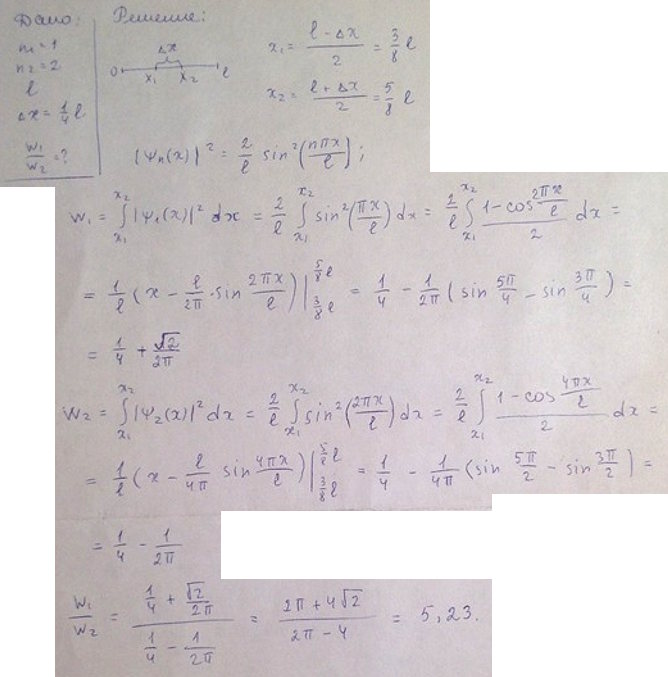 Дано: Решение:
n₁ = 1
n₂ = 2
l
Δx = 1/4 l
w₁/w₂ = ?
Δx
0 x₁ x₂ l
x₁ = (l - Δx)/2 = 3/8 l
x₂ = (l + Δx)/2 = 5/8 l
|ψₙ(x)|² = 2/l sin²(nπx/l);
w₁ = ∫_{x₁}^{x₂} |ψ₁(x)|² dx = 2/l ∫_{x₁}^{x₂} sin²(πx/l) dx = 2/l ∫_{x₁}^{x₂} (1 - cos 2πx/l)/2 dx =
= 1/l (x - l/2π · sin 2πx/l) |_{3/8 l}^{5/8 l} = 1/4 - 1/2π (sin 5π/4 - sin 3π/4) =
= 1/4 + √2/2π
w₂ = ∫_{x₁}^{x₂} |ψ₂(x)|² dx = 2/l ∫_{x₁}^{x₂} sin²(2πx/l) dx = 2/l ∫_{x₁}^{x₂} (1 - cos 4πx/l)/2 dx =
= 1/l (x - l/4π sin 4πx/l) |_{3/8 l}^{5/8 l} = 1/4 - 1/4π (sin 5π/2 - sin 3π/2) =
= 1/4 - 1/2π
w₁/w₂ = (1/4 + √2/2π)/(1/4 - 1/2π) = (2π + 4√2)/(2π - 4) = 5,23.